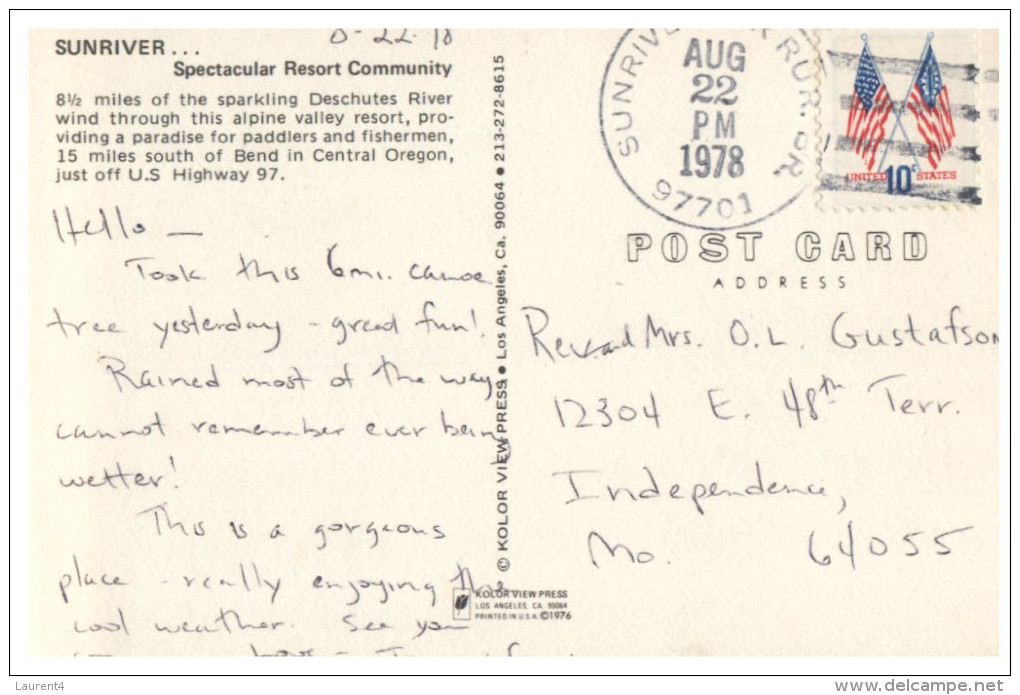 8-22-78
SUNRIVER...
Spectacular Resort Community
8½ miles of the sparkling Deschutes River
wind through this alpine valley resort, pro-
viding a paradise for paddlers and fishermen,
15 miles south of Bend in Central Oregon,
just off U.S Highway 97.
Hello —
Took this 6 mi. canoe
tree yesterday - great fun!
Rained most of the way
cannot remember ever being
wetter!
This is a gorgeous
place - really enjoying the
cool weather. See you
love -
© KOLOR VIEW PRESS ● Los Angeles, Ca. 90064 ● 213-272-8615
KOLOR VIEW PRESS
LOS ANGELES, CA. 90064
PRINTED IN U.S.A. ©1976
SUNRIVER RUR. BR.
AUG
22
PM
1978
97701
UNITED 10c STATES
POST CARD
ADDRESS
Rev and Mrs. O.L. Gustafson
12304 E. 48th Terr.
Independence,
Mo. 64055
Laurent4
delcampe.net